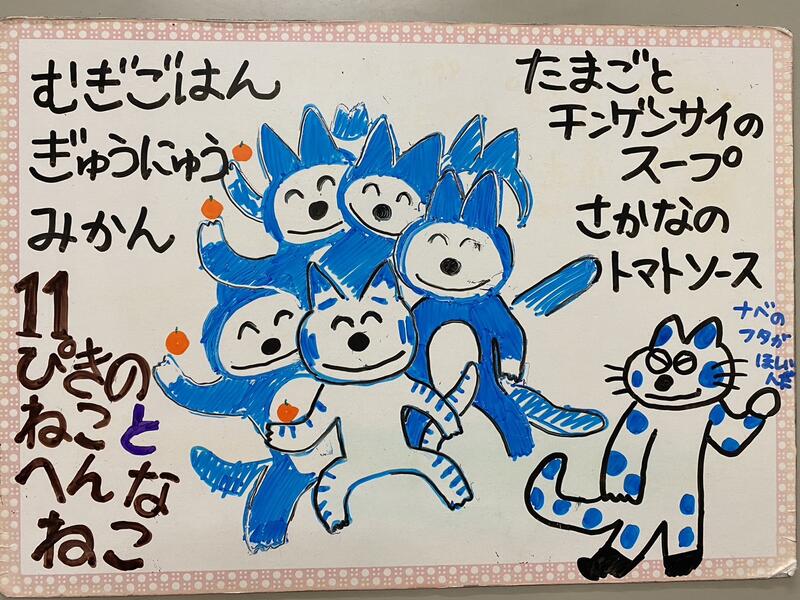 むぎごはん
ぎゅうにゅう
みかん
11
ぴきの
ねこと
へんな
ねこ
たまごと
チンゲンサイの
スープ
さかなの
トマトソース
ナベの
フタが
ほしい
んだ